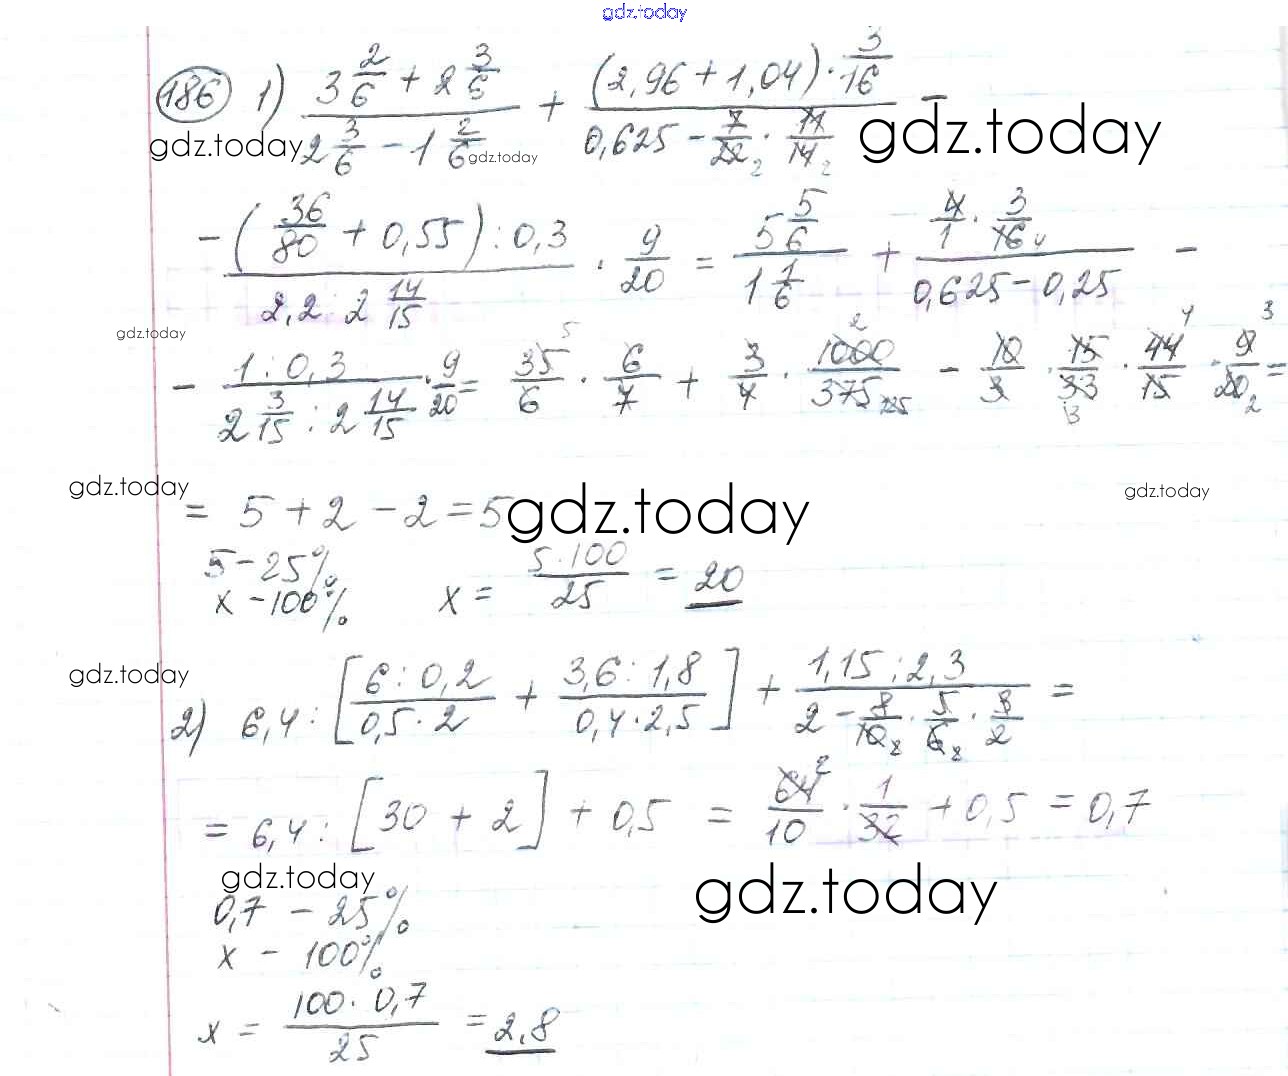 gdz.today
186 1) (3 2/6 + 2 3/6)/(2 3/6 − 1 2/6) + ((2,96 + 1,04) · 3/16)/(0,625 − 7/22 · 11/14) −
gdz.today gdz.today gdz.today
− ((36/80 + 0,55) : 0,3)/(2,2 : 2 14/15) · 9/20 = (5 5/6)/(1 1/6) + (4/1 · 3/16)/(0,625 − 0,25) −
gdz.today
− (1 : 0,3)/(2 3/15 : 2 14/15) · 9/20 = 35/6 · 6/7 + 3/4 · 1000/375 − 10/3 · 15/33 · 44/15 · 9/20 =
gdz.today gdz.today
= 5 + 2 − 2 = 5 gdz.today
5 − 25%
x − 100% x = (5 · 100)/25 = 20
gdz.today
2) 6,4 : [(6 : 0,2)/(0,5 · 2) + (3,6 : 1,8)/(0,4 · 2,5)] + (1,15 : 2,3)/(2 − 8/10 · 5/6 · 3/2) =
= 6,4 : [30 + 2] + 0,5 = 64/10 · 1/32 + 0,5 = 0,7
gdz.today gdz.today
0,7 − 25%
x − 100%
x = (100 · 0,7)/25 = 2,8